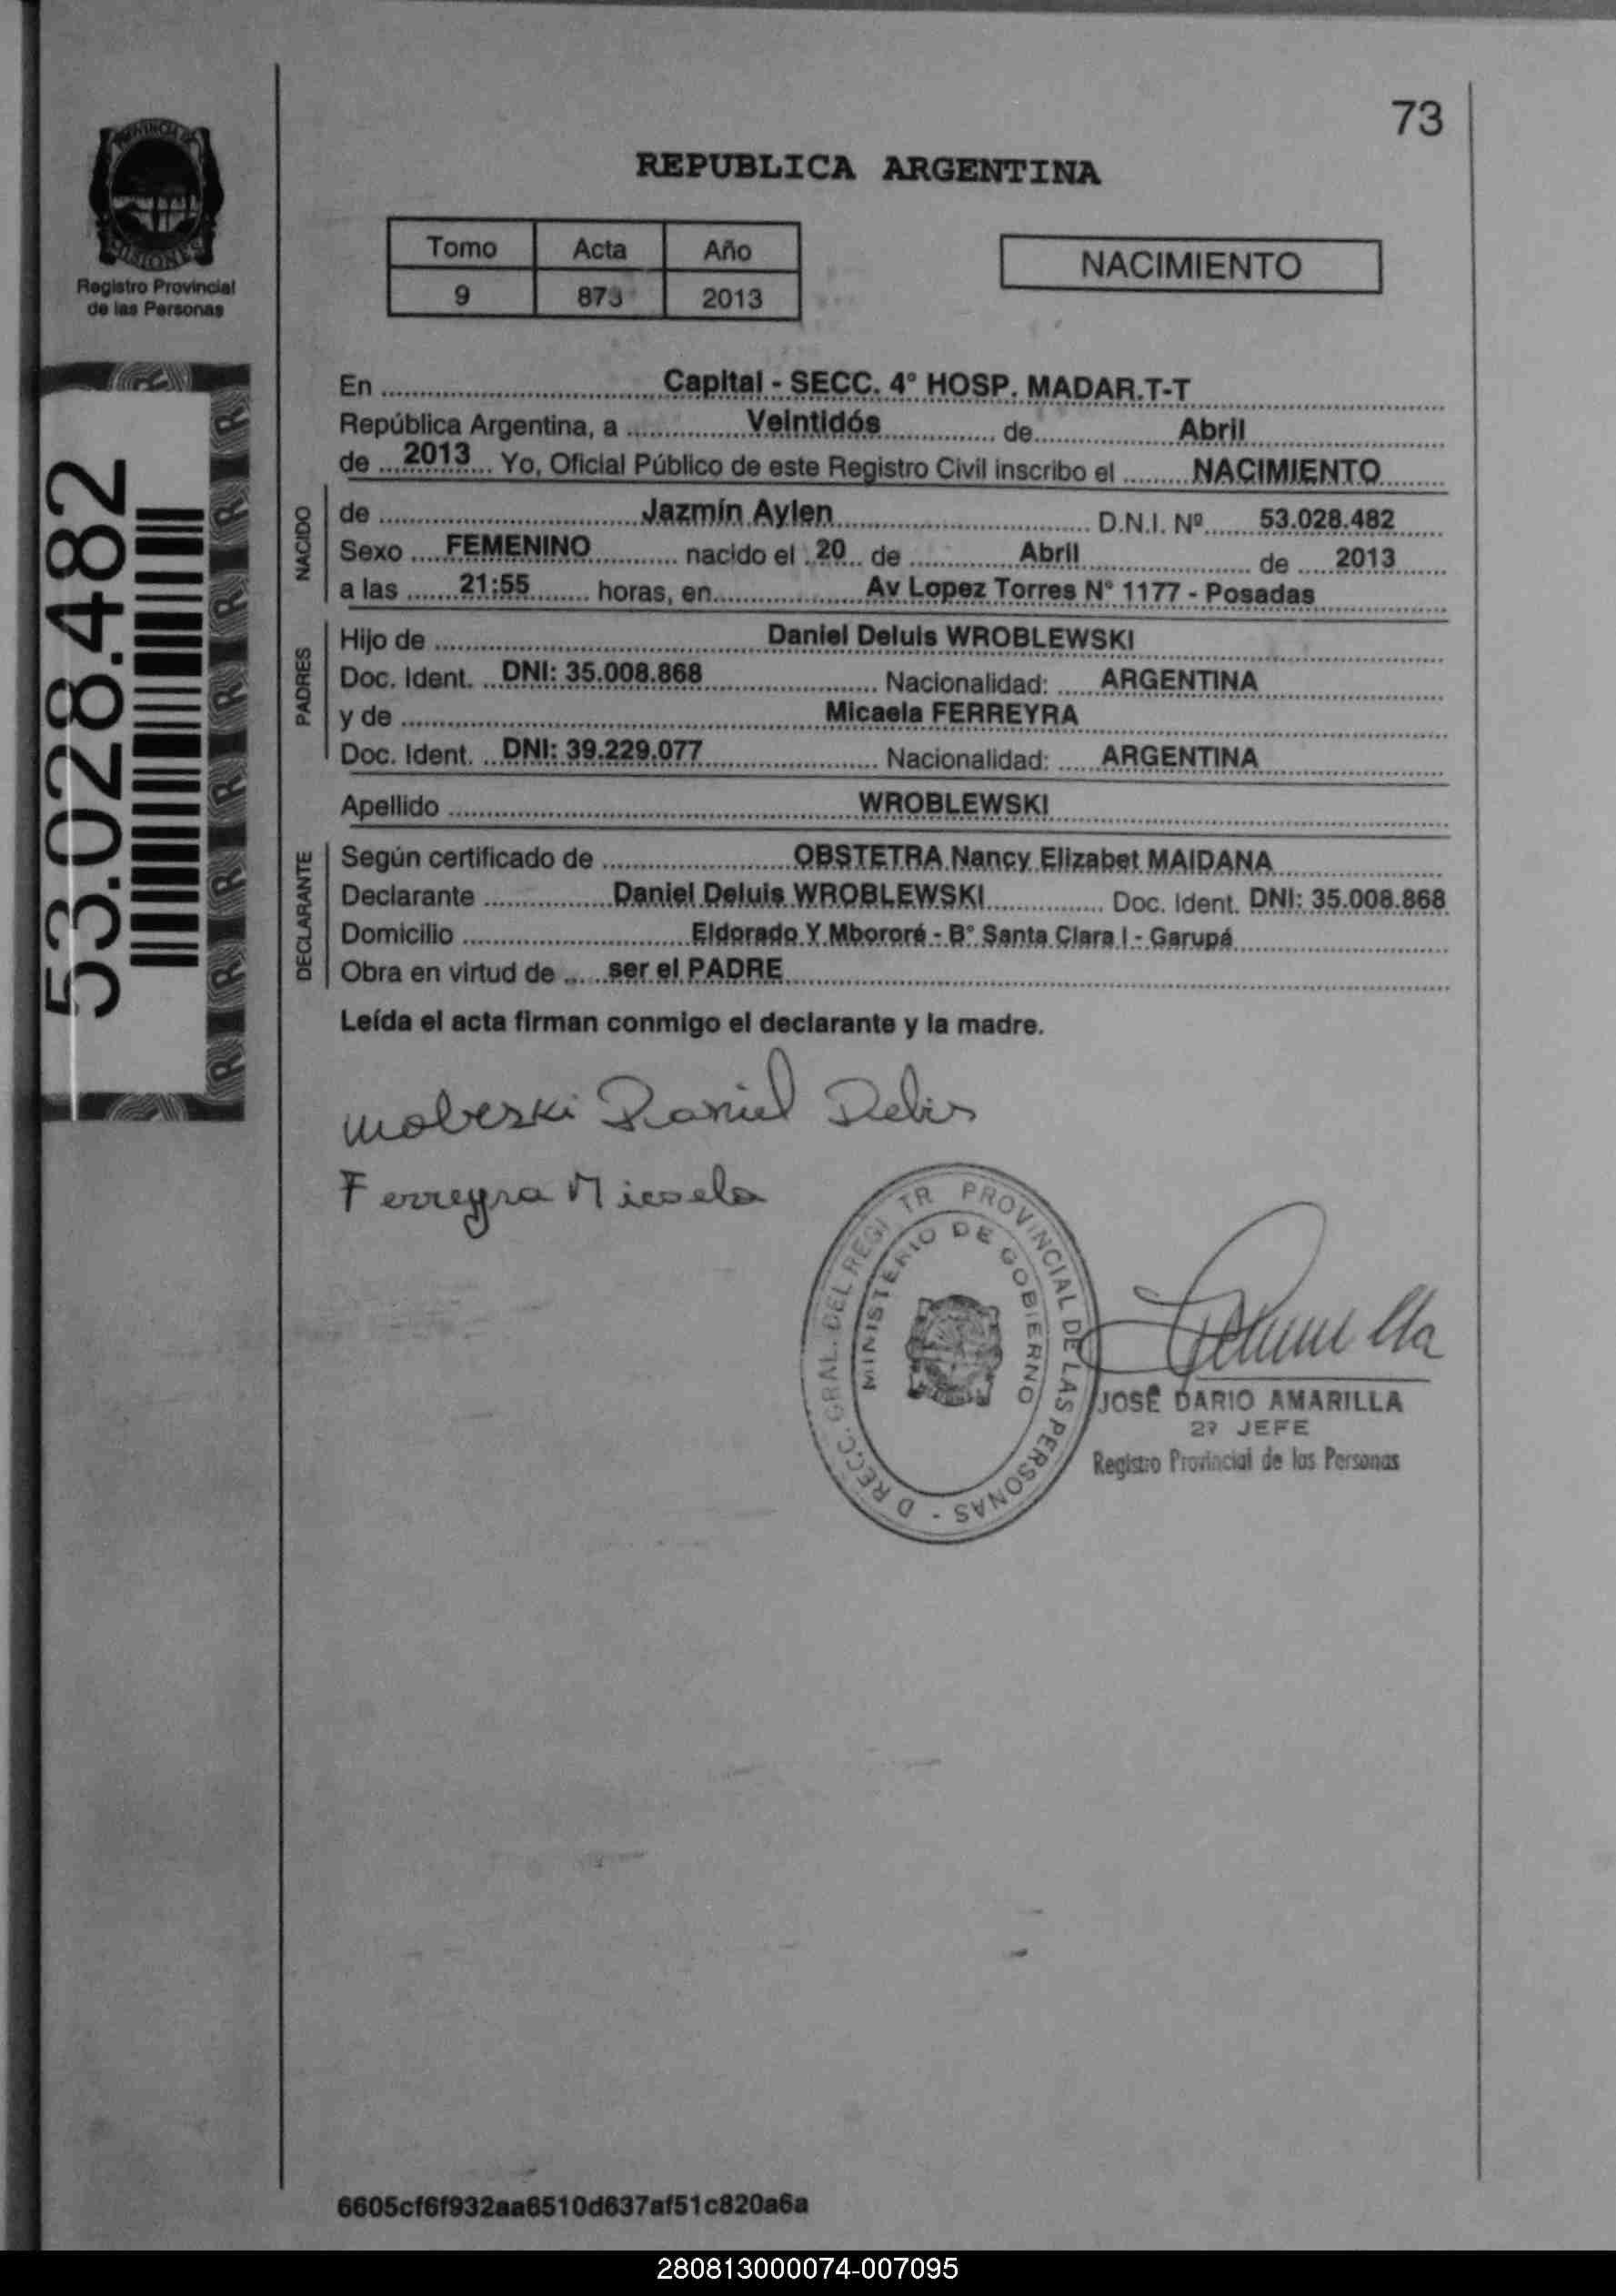 73
REPUBLICA ARGENTINA
PROVINCIA DE
MISIONES
Registro Provincial
de las Personas
Tomo Acta Año
9 873 2013
NACIMIENTO
53.028.482
En Capital - SECC. 4° HOSP. MADAR.T-T
República Argentina, a Veintidós de Abril
de 2013 Yo, Oficial Público de este Registro Civil inscribo el NACIMIENTO
NACIDO
de Jazmín Aylen D.N.I. Nº 53.028.482
Sexo FEMENINO nacido el 20 de Abril de 2013
a las 21:55 horas, en Av Lopez Torres N° 1177 - Posadas
PADRES
Hijo de Daniel Deluis WROBLEWSKI
Doc. Ident. DNI: 35.008.868 Nacionalidad: ARGENTINA
y de Micaela FERREYRA
Doc. Ident. DNI: 39.229.077 Nacionalidad: ARGENTINA
Apellido WROBLEWSKI
DECLARANTE
Según certificado de OBSTETRA Nancy Elizabet MAIDANA
Declarante Daniel Deluis WROBLEWSKI Doc. Ident. DNI: 35.008.868
Domicilio Eldorado Y Mbororé - B° Santa Clara I - Garupá
Obra en virtud de ser el PADRE
Leída el acta firman conmigo el declarante y la madre.
Daniel
Ferreyra Micaela
D RECC. GRAL. DEL REGI TR PROVINCIAL DE LAS PERSONAS -
MINISTERIO DE GOBIERNO
JOSÉ DARIO AMARILLA
2º JEFE
Registro Provincial de las Personas
6605cf6f932aa6510d637af51c820a6a
280813000074-007095